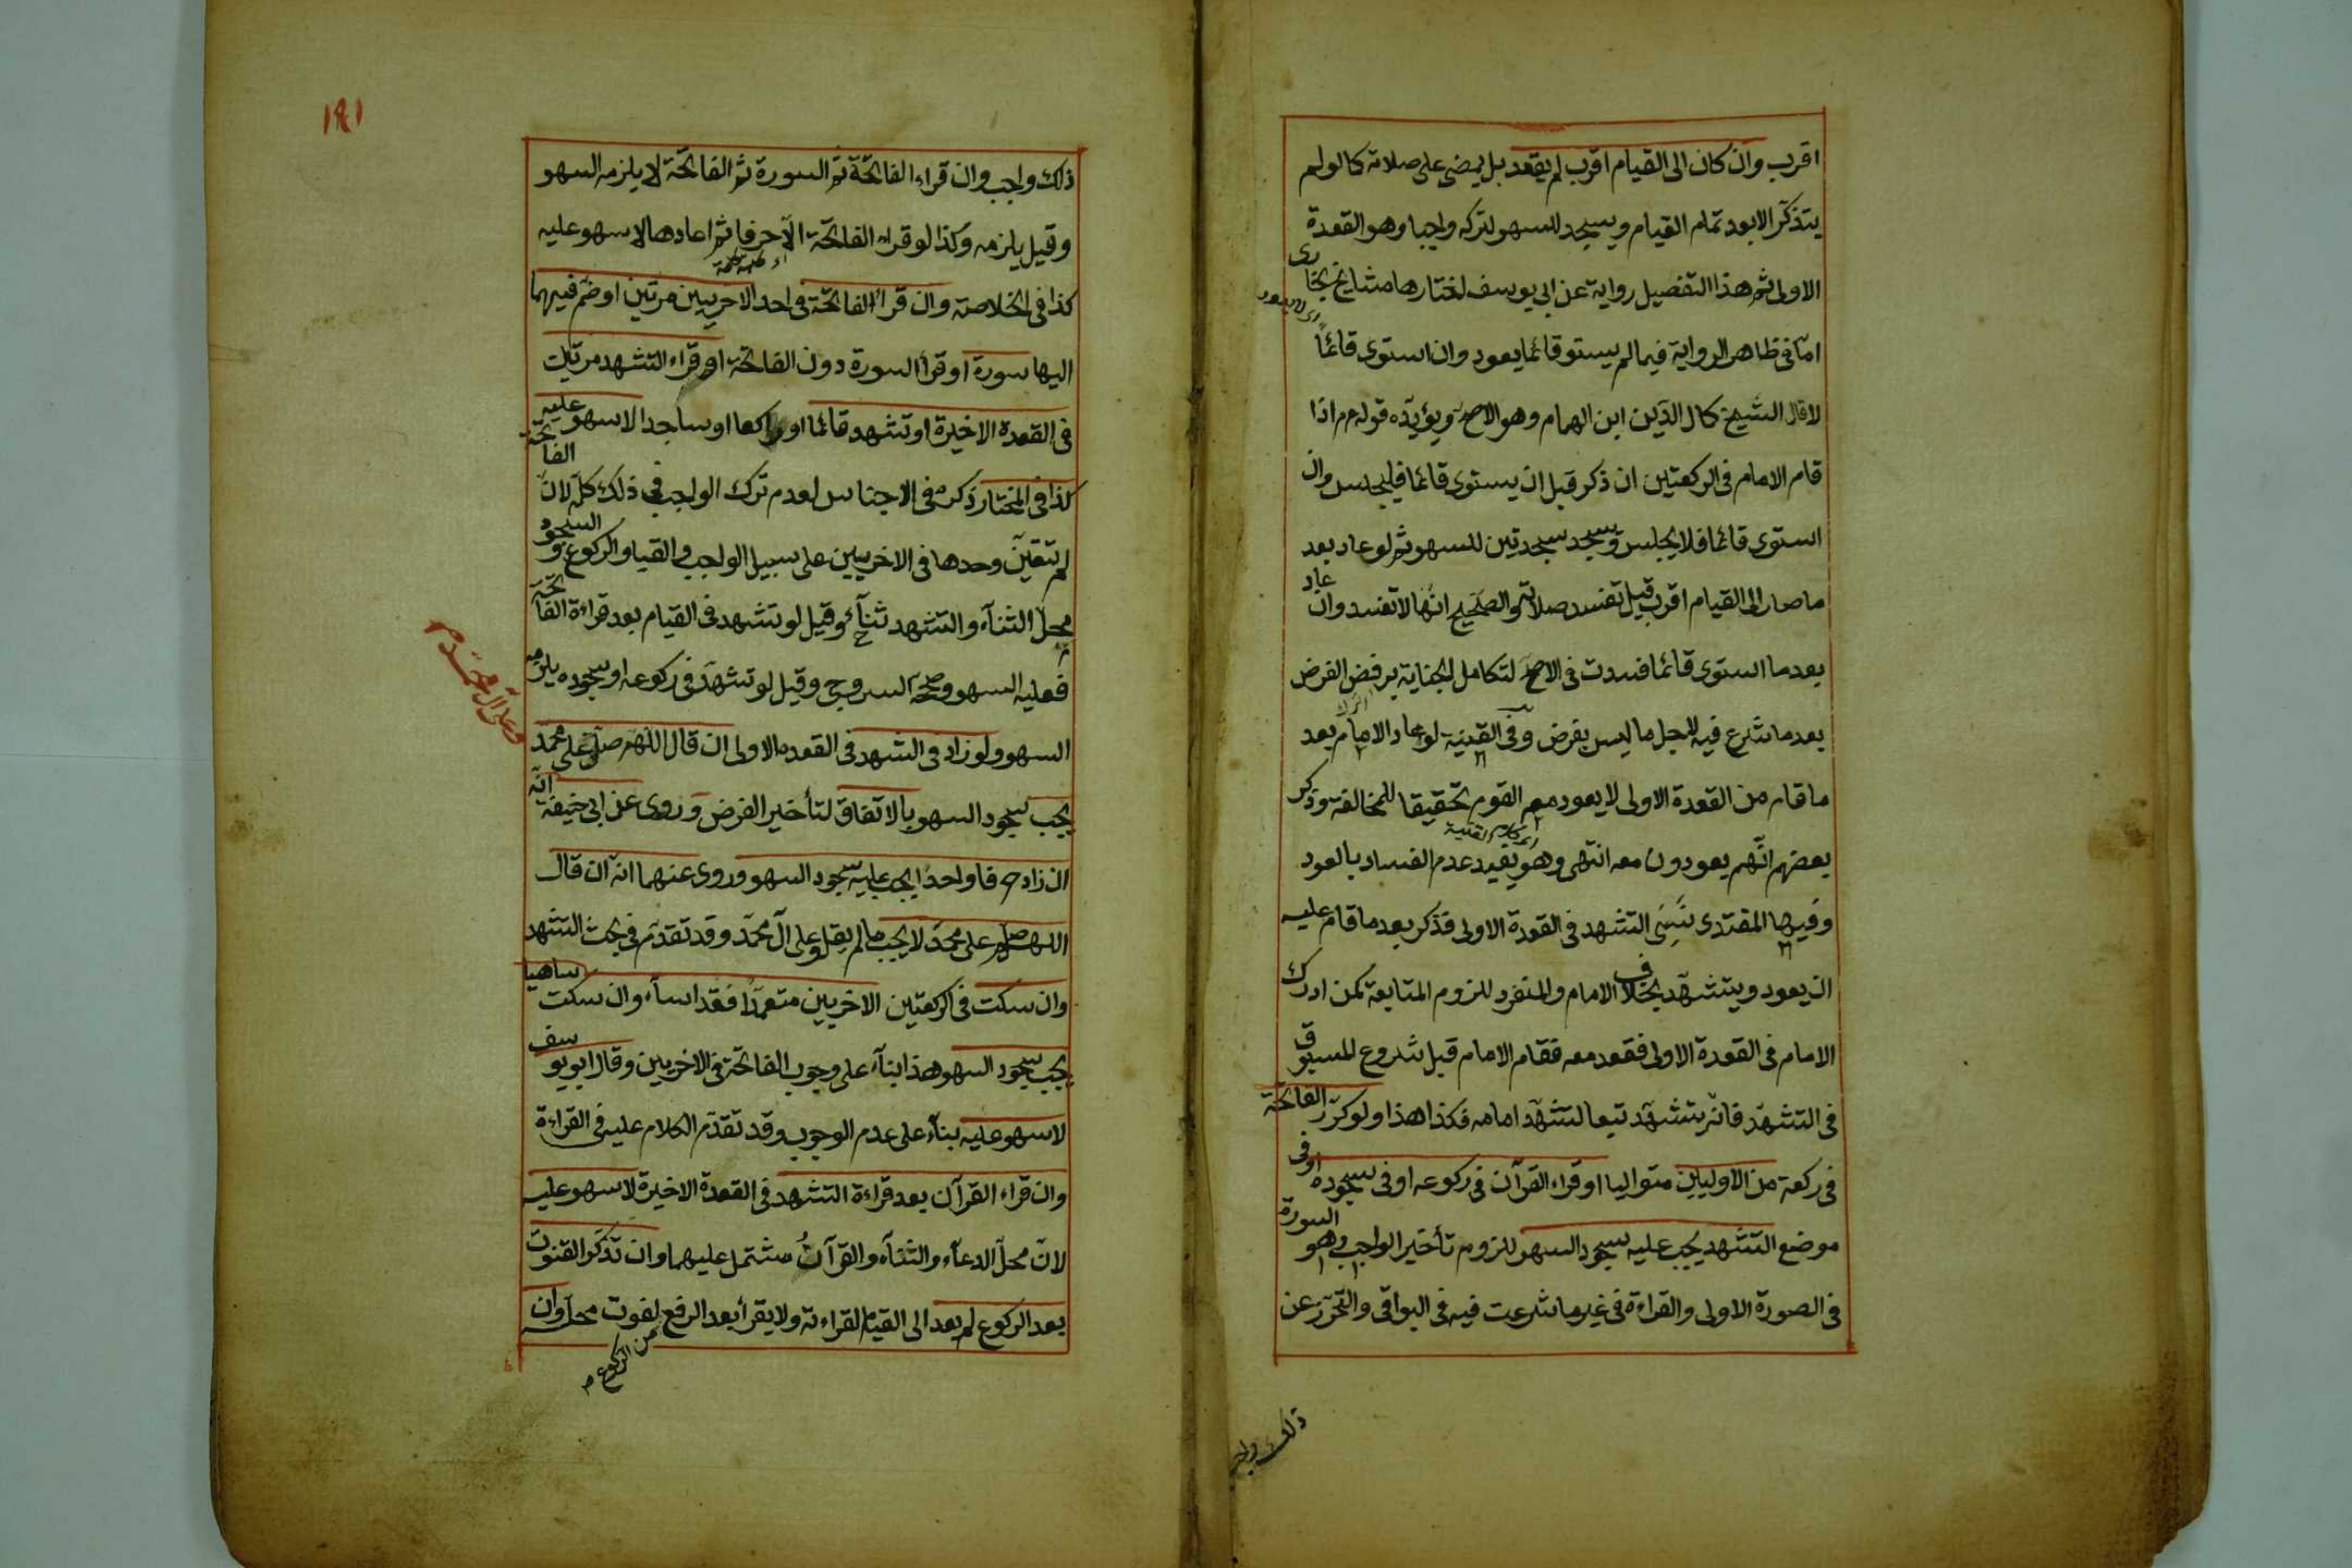 اقرب وان كان الى القيام اقرب لم يقعد بل يمضى على صلاته كما لو لم
يتذكر الا بعد تمام القيام ويسجد للسهو لتركه واجبا وهو القعدة
الاولى ثم هذا التفصيل رواية عن ابى يوسف اختارها مشايخ بخارى
اما فى ظاهر الرواية فيما لم يستو قائما يعود وان استوى قائماً
اى لا يعود
لا قال الشيخ كمال الدين ابن الهمام وهو الاصح ويؤيده قوله م م اذا
قام الامام فى الركعتين ان ذكر قبل ان يستوى قائما فليجلس وان
استوى قائما فلا يجلس ويسجد سجدتين للسهو ثم لو عاد بعد
ما صار الى القيام اقرب قيل تفسد صلاته والصحيح انها لا تفسد وان عاد
بعد ما استوى قائما فسدت فى الاصح لتكامل الجناية برفض الفرض
بعد ما شرع فيه لاجل ما ليس بفرض وفى القنية لو عاد الامام بعد
ما قام من القعدة الاولى لا يعود معه القوم تحقيقا للمخالفة وذكر
بعضهم انهم يعودون معه انتهى وهو يفيد عدم الفساد بالعود
اى كلام القنية
وفيها المقتدى نسى التشهد فى القعدة الاولى فذكر بعد ما قام عليه
ان يعود ويتشهد بخلاف الامام والمنفرد للزوم المتابعة كمن ادرك
الامام فى القعدة الاولى فقعد معه فقام الامام قبل شروع المسبوق
فى التشهد فانه يتشهد تبعا لتشهد امامه فكذا هذا ولو كرر الفاتحة
فى ركعة من الاوليين متواليا او قراء القرآن فى ركوعه او فى سجوده او فى
موضع التشهد يجب عليه سجود السهو للزوم تأخير الواجب وهو السورة
فى الصورة الاولى والقراءة فى غير ما شرعت فيه فى البواقى والتحرز عن
ذلك واجب
١٤١
ذلك واجب وان قراء الفاتحة ثم السورة ثم الفاتحة لا يلزمه السهو
وقيل يلزمه وكذا لو قراء الفاتحة الا حرفا ثم اعادها لا سهو عليه
كذا فى الخلاصة وان قرأ الفاتحة فى احد الاخريين مرتين او ضم فيهما
اليها سورة او قرأ السورة دون الفاتحة او قراء التشهد مرتين
فى القعدة الاخيرة او تشهد قائما او راكعا او ساجدا لا سهو عليه
كذا فى المختار ذكره فى الاجناس لعدم ترك الواجب فى ذلك كله لان الفاتحة
لم تتعين وحدها فى الاخريين على سبيل الواجب والقيام والركوع والسجود
محل الثناء والتشهد ثناء وقيل لو تشهد فى القيام بعد قراءة الفاتحة
فعليه السهو وصححه السروجى وقيل لو تشهد فى ركوعه او سجوده يلزمه
السهو ولو زاد فى التشهد فى القعدة الاولى ان قال اللهم صل على محمد
وعلى آل محمد م
يجب سجود السهو بالاتفاق لتأخير الفرض وروى عن ابى حنيفة انه
ان زاد حرفا واحدا يجب عليه سجود السهو وروى عنهما انه ان قال
اللهم صل على محمد لا يجب ما لم يقل وعلى آل محمد وقد تقدم فى بحث التشهد
وان سكت فى الركعتين الاخريين متعمدا فقد اساء وان سكت ساهيا
يجب سجود السهو هذا بناء على وجوب الفاتحة فى الاخريين وقال ابو يوسف
لا سهو عليه بناء على عدم الوجوب وقد تقدم الكلام عليه فى القراءة
وان قراء القرآن بعد قراءة التشهد فى القعدة الاخيرة لا سهو عليه
لان محل الدعاء والثناء والقرآن مشتمل عليهما وان تذكر القنوت
بعد الركوع لم يعد الى القيام لقراءته ولا يقرأ بعد الرفع لفوت محله وان
من الركوع م